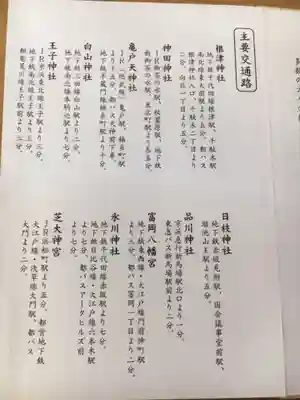 主要交通路
根津神社
地下鉄千代田線根津駅、千駄木駅
南北線東大前駅より五分、都バス
根津神社入口、千駄木二丁目より
二分、向丘一丁目より五分。
神田神社
JR御茶の水駅、秋葉原駅、地下鉄
新御茶の水駅、末広町駅より各五分。
亀戸天神社
JR総武線、亀戸駅、錦糸町駅
より十五分、都バス天神前下車、
地下鉄半蔵門線錦糸町駅より十五分。
白山神社
地下鉄三田線白山駅より二分、
地下鉄南北線本駒込駅より七分。
王子神社
JR京浜東北線王子駅より三分、
地下鉄南北線王子駅より三分、
都電荒川線王子駅前より三分。
日枝神社
地下鉄赤坂見附駅、国会議事堂前駅、
溜池山王駅より五分。
品川神社
京浜急行新馬場駅北口より一分、
東急バス新馬場駅前より二分。
富岡八幡宮
地下鉄東西線・大江戸線門前仲町駅
より三分、都バス富岡一丁目より二分。
氷川神社
地下鉄千代田線赤坂駅より七分、
地下鉄日比谷線・大江戸線六本木駅
より七分、都バスアークヒルズ前
より五分。
芝大神宮
JR浜松町駅より五分、都営地下鉄
大江戸線・浅草線大門駅、都バス
大門より二分。